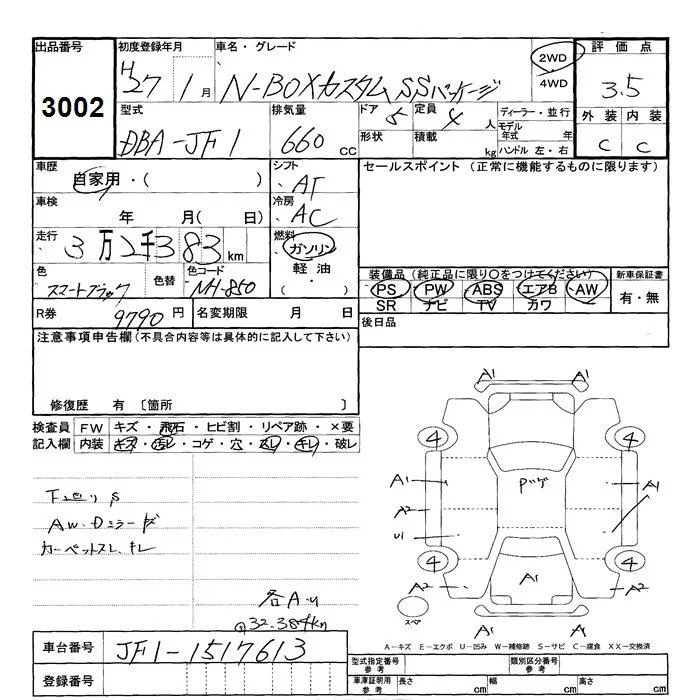 出品番号
3002
初度登録年月
H27 1月
車名・グレード
N-BOXカスタム SSパッケージ
2WD
4WD
評価点
3.5
外装 内装
C C
型式
DBA-JF1
排気量
660 cc
ドア 5
形状
定員 4 人
積載 kg
ディーラー・並行
モデル年式 年
ハンドル 左・右
車歴
自家用・( )
シフト
AT
セールスポイント (正常に機能するものに限ります)
車検
年 月( 日)
冷房
AC
走行
3万2千383 km
燃料
ガソリン
軽油
・
( )
色
スマートブラック
色替
色コード
NH-850
装備品(純正品に限り○をつけてください)
PS PW ABS エアB AW
SR ナビ TV カワ
新車保証書
有・無
R券
9790円
名変期限 月 日
後日品
注意事項申告欄(不具合内容等は具体的に記入して下さい)
修復歴 有 〔箇所 〕
検査員 FW キズ・飛石・ヒビ割・リペア跡・×要
記入欄 内装 キズ・汚レ・コゲ・穴・スレ・キレ・破レ
AW. Dミラーダ
カーペットスレ.キレ
各A.U
32.384km
A1 A1
4 4
A1 Pツゲ A1
A2
U1
4 4
A2 A1 A2
スペア
A1 A1
A-キズ E-エクボ U-凹み W-補修跡 S-サビ C-腐食 XX-交換済
車台番号
JF1-1517613
登録番号
型式指定番号
参考
類別区分番号
参考
車庫証明用
参考
長さ cm
幅 cm
高さ cm